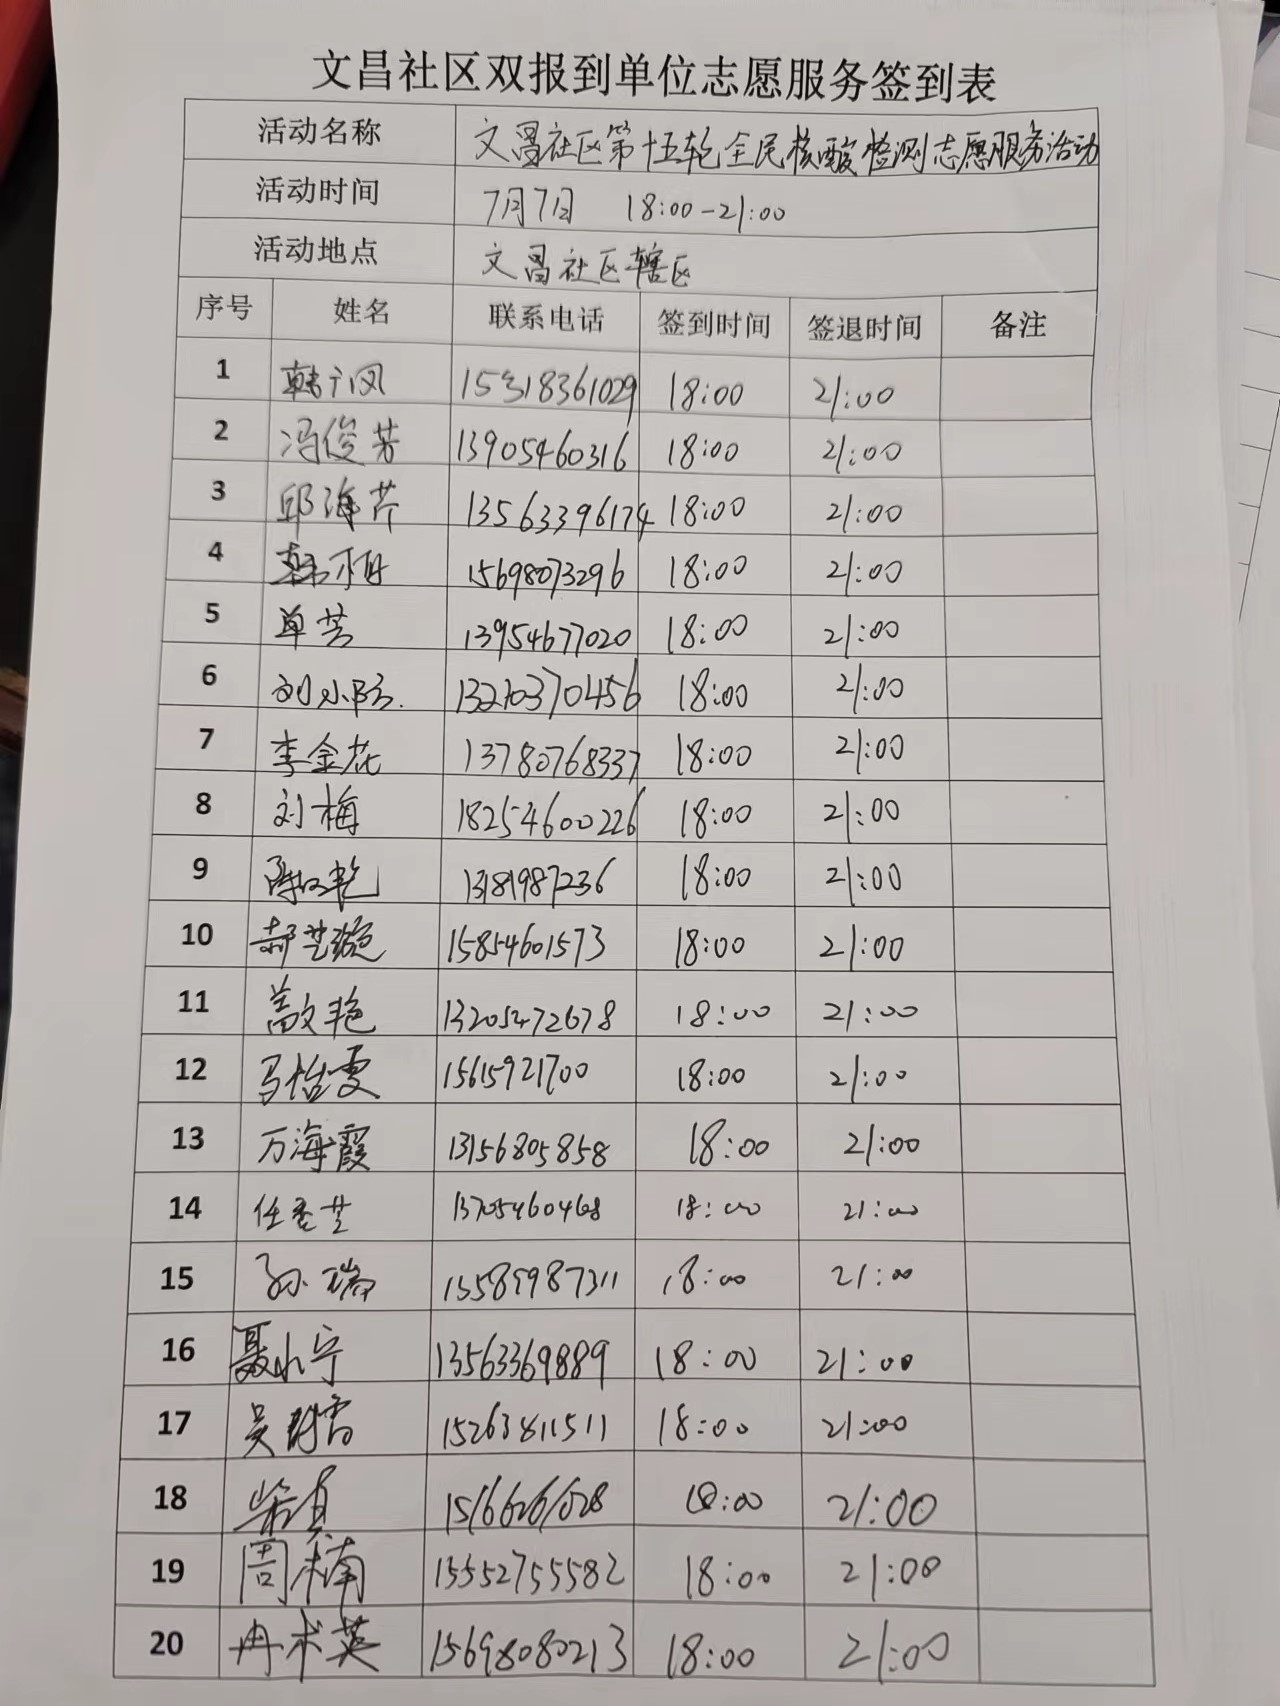 文昌社区双报到单位志愿服务签到表
活动名称 文昌社区第十五轮全民核酸检测志愿服务活动
活动时间 7月7日 18:00-21:00
活动地点 文昌社区辖区
序号 姓名 联系电话 签到时间 签退时间 备注
1 韩广凤 15318361029 18:00 21:00
2 冯俊芳 13905460316 18:00 21:00
3 邱海芹 13563396174 18:00 21:00
4 韩 15698073296 18:00 21:00
5 单芳 13954677020 18:00 21:00
6 刘小 13210370456 18:00 21:00
7 李金花 13780768337 18:00 21:00
8 刘梅 18254600226 18:00 21:00
9 艳 18:00 21:00
10 郝芝璇 15854601573 18:00 21:00
11 艳 13205472678 18:00 21:00
12 马怡雯 15615921700 18:00 21:00
13 万海霞 13156805858 18:00 21:00
14 任 芝 13705460468 18:00 21:00
15 孙瑞 15589987311 18:00 21:00
16 聂小宁 13563369889 18:00 21:00
17 吴 雪 15263811511 18:00 21:00
18 18:00 21:00
19 周楠 15552755582 18:00 21:00
20 冉术英 15698080213 18:00 21:00